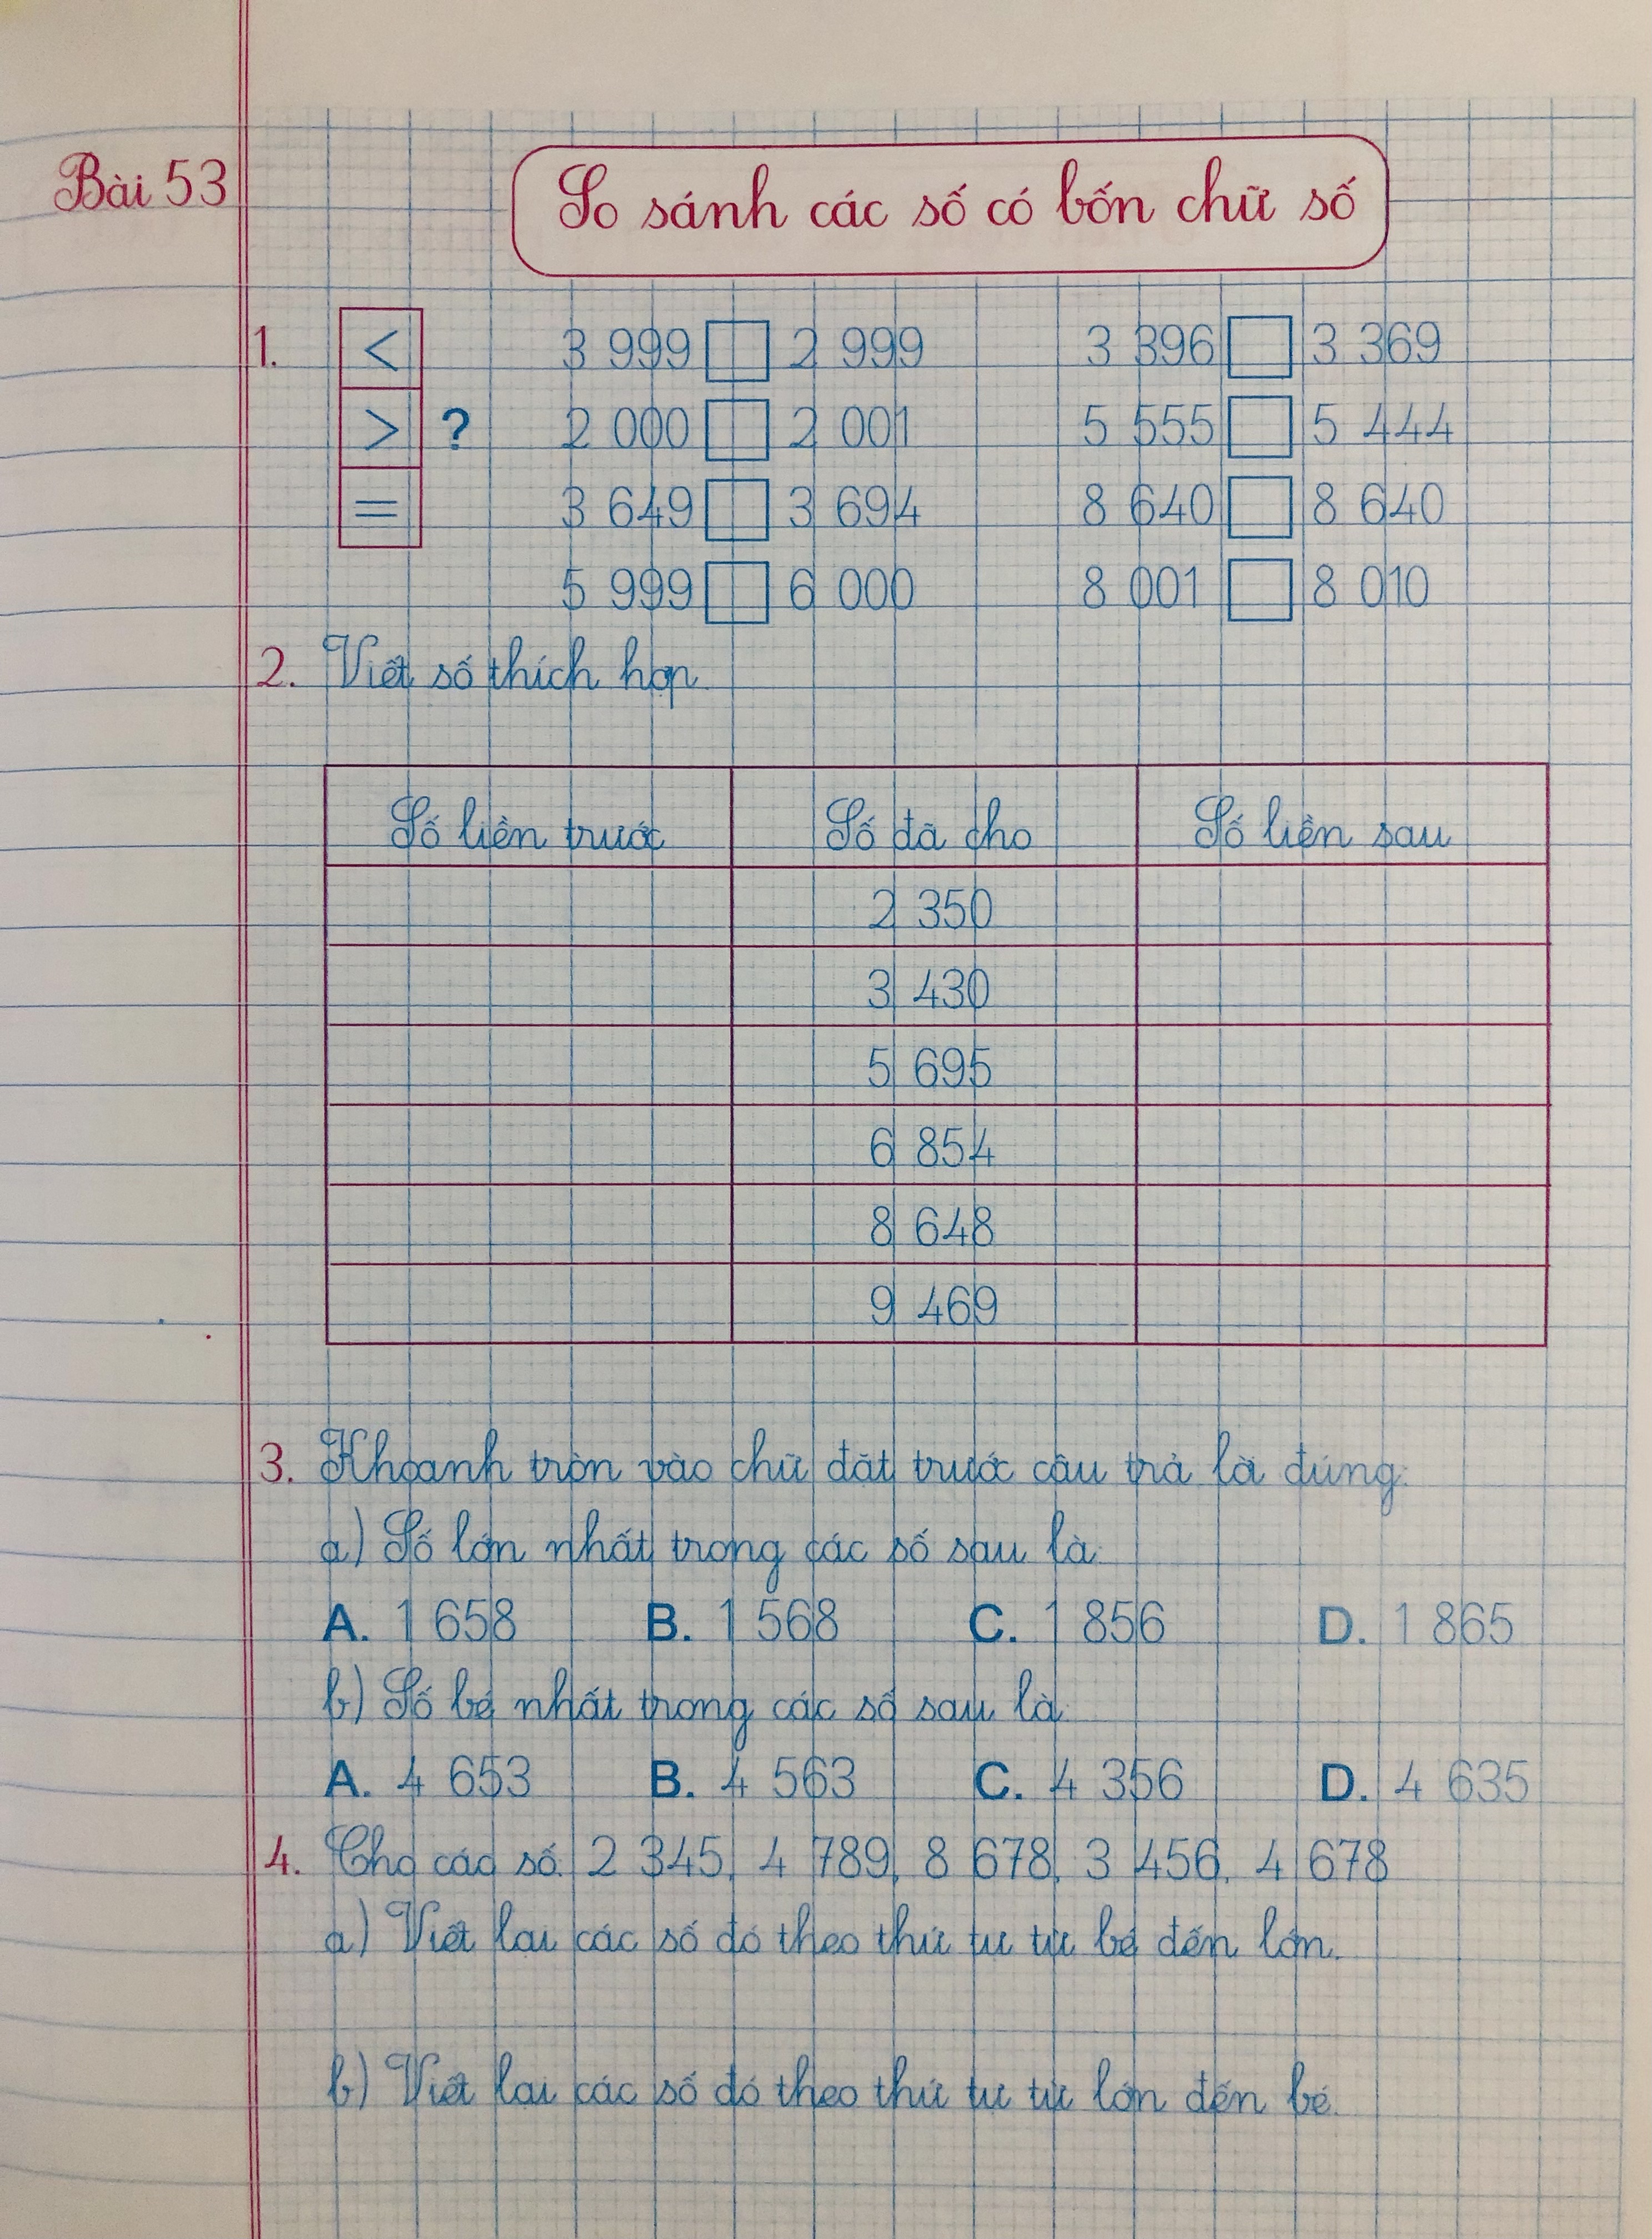 Bài 53
So sánh các số có bốn chữ số
1. < 3 999 □ 2 999 3 396 □ 3 369
> ? 2 000 □ 2 001 5 555 □ 5 444
= 3 649 □ 3 694 8 640 □ 8 640
5 999 □ 6 000 8 001 □ 8 010
2. Viết số thích hợp.
Số liền trước Số đã cho Số liền sau
2 350
3 430
5 695
6 854
8 648
9 469
3. Khoanh tròn vào chữ đặt trước câu trả lời đúng:
a) Số lớn nhất trong các số sau là:
A. 1 658 B. 1 568 C. 1 856 D. 1 865
b) Số bé nhất trong các số sau là:
A. 4 653 B. 4 563 C. 4 356 D. 4 635
4. Cho các số: 2 345, 4 789, 8 678, 3 456, 4 678
a) Viết lại các số đó theo thứ tự từ bé đến lớn.
b) Viết lại các số đó theo thứ tự từ lớn đến bé.